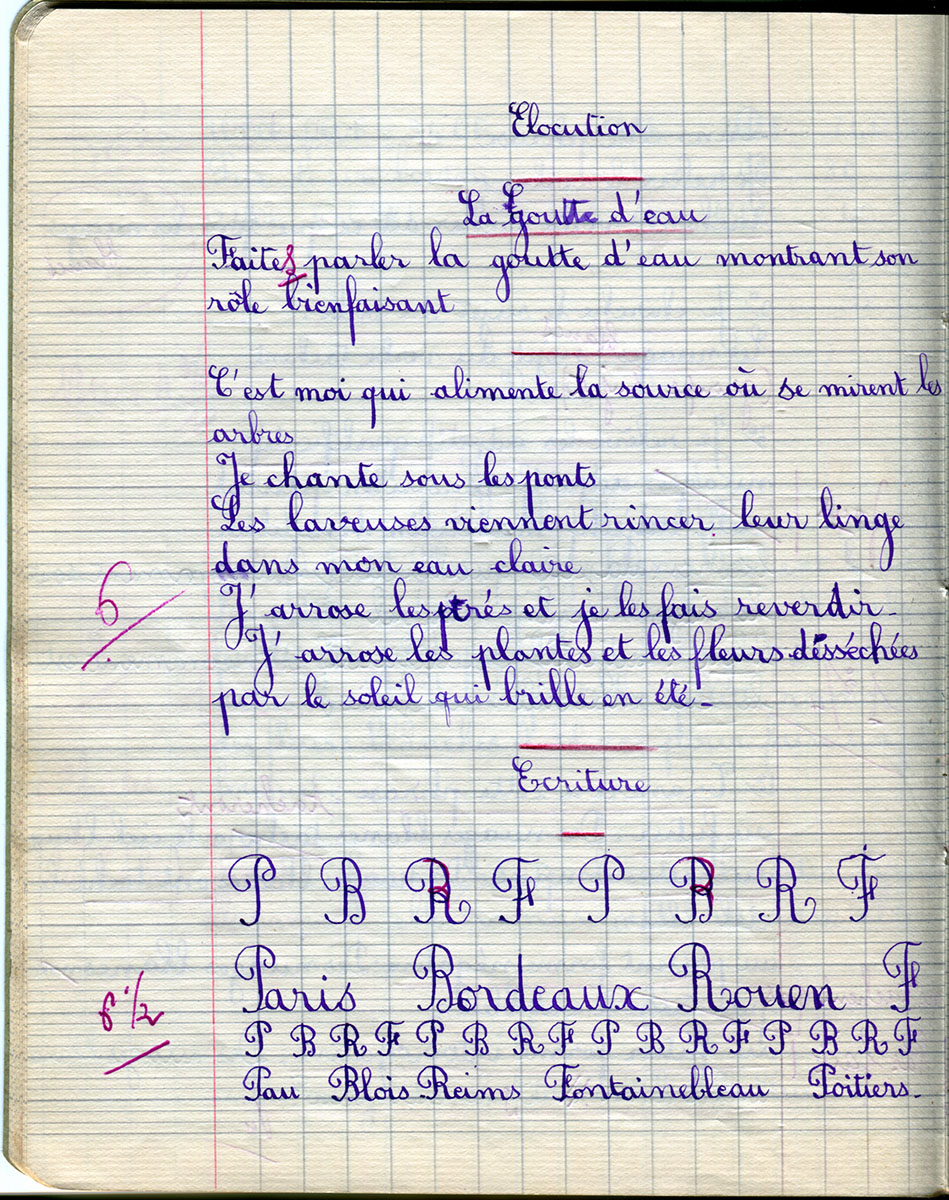 Elocution
La Goutte d'eau
Faites parler la goutte d'eau montrant son
rôle bienfaisant
C'est moi qui alimente la source où se mirent les
arbres
Je chante sous les ponts
Les laveuses viennent rincer leur linge
dans mon eau claire
6
J'arrose les prés et je les fais reverdir.
J'arrose les plantes et les fleurs désséchées
par le soleil qui brille en été.
Ecriture
P B R F P B R F
Paris Bordeaux Rouen F
6 1/2
P B R F P B R F P B R F P B R F
Pau Blois Reims Fontainebleau Poitiers.